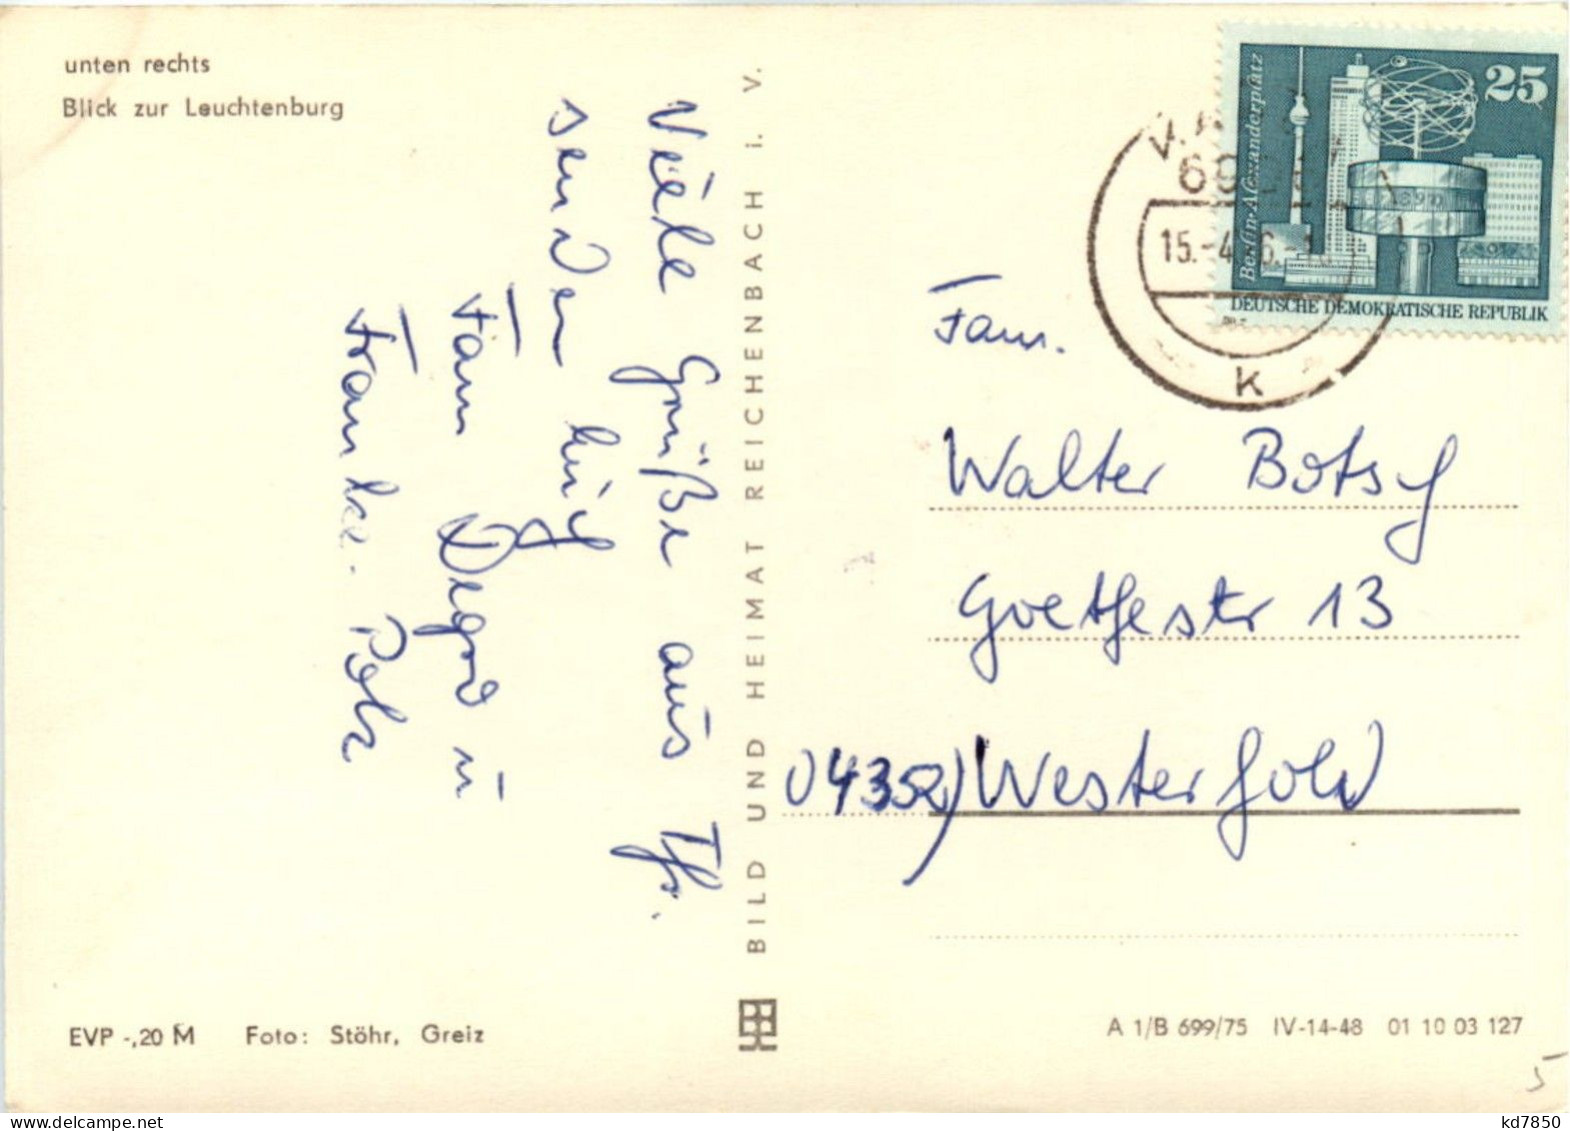 unten rechts
Blick zur Leuchtenburg
Viele Grüße aus Th.
senden
Fam
Franke
BILD UND HEIMAT REICHENBACH i. V.
Berlin-Alexanderplatz
25
DEUTSCHE DEMOKRATISCHE REPUBLIK
15.-4.
k
Fam.
Walter Botsch
Goethestr 13
Westerhold
EVP -,20 M Foto: Stöhr, Greiz
A 1/B 699/75 IV-14-48 01 10 03 127
5
kd7850